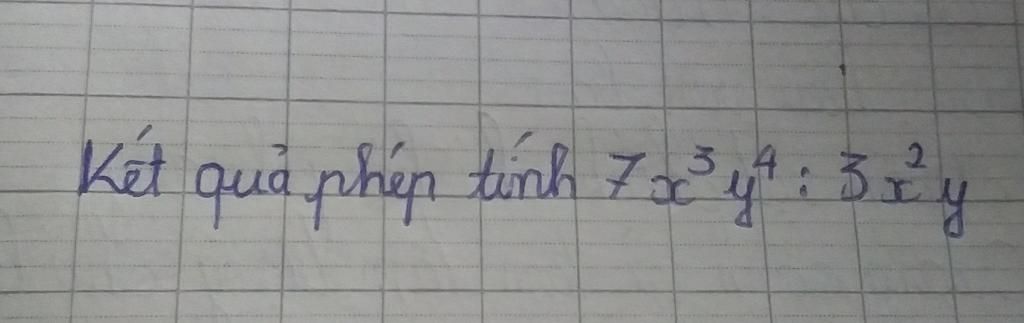 Kết quả phép tính 7x³y⁴ : 3x²y